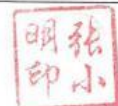 张小
明印